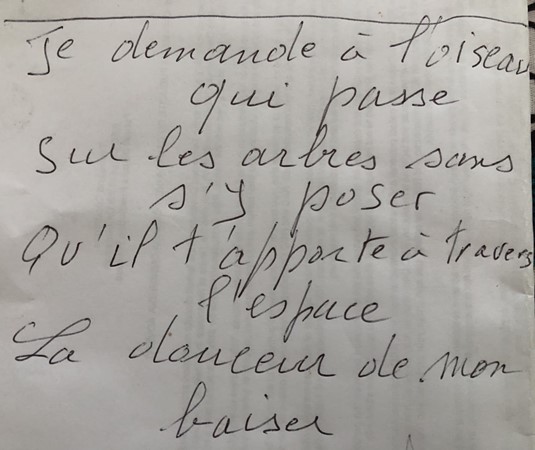 Je demande à l'oiseau
qui passe
Sur les arbres sans
s'y poser
Qu'il t'apporte à travers
l'espace
La douceur de mon
baiser